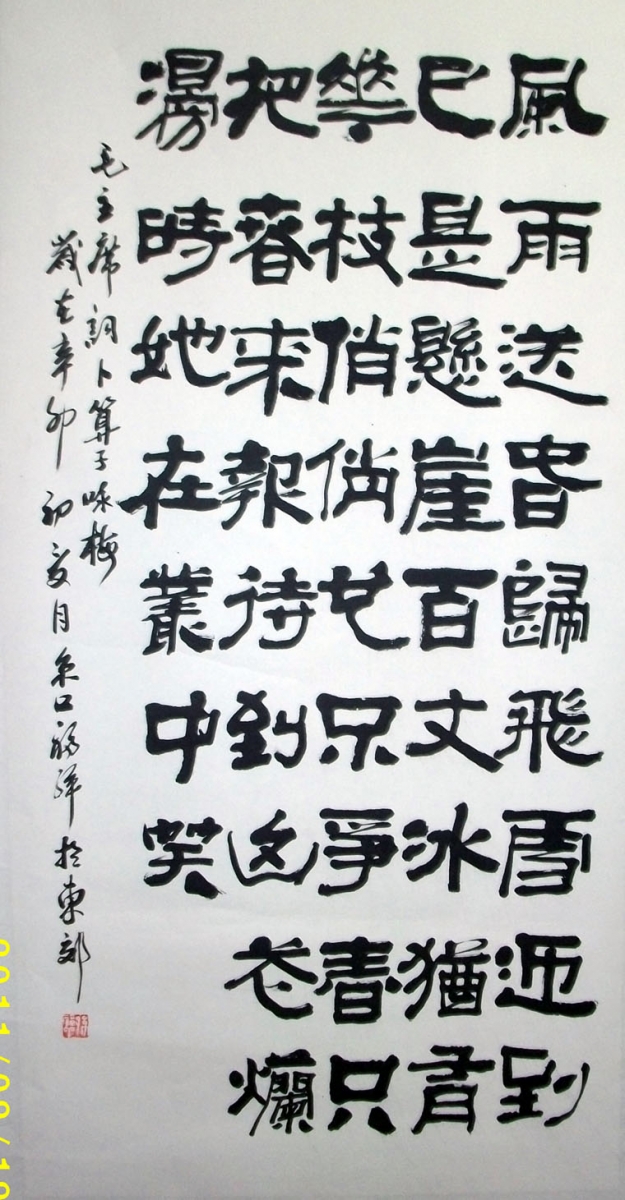 風雨送春歸飛雪迎到
已是懸崖百丈冰猶有
花枝俏俏也不爭春只
把春來報待到山花爛
漫時她在叢中笑
毛主席詞卜算子咏梅
歲在辛卯初夏月口福祥於東郊